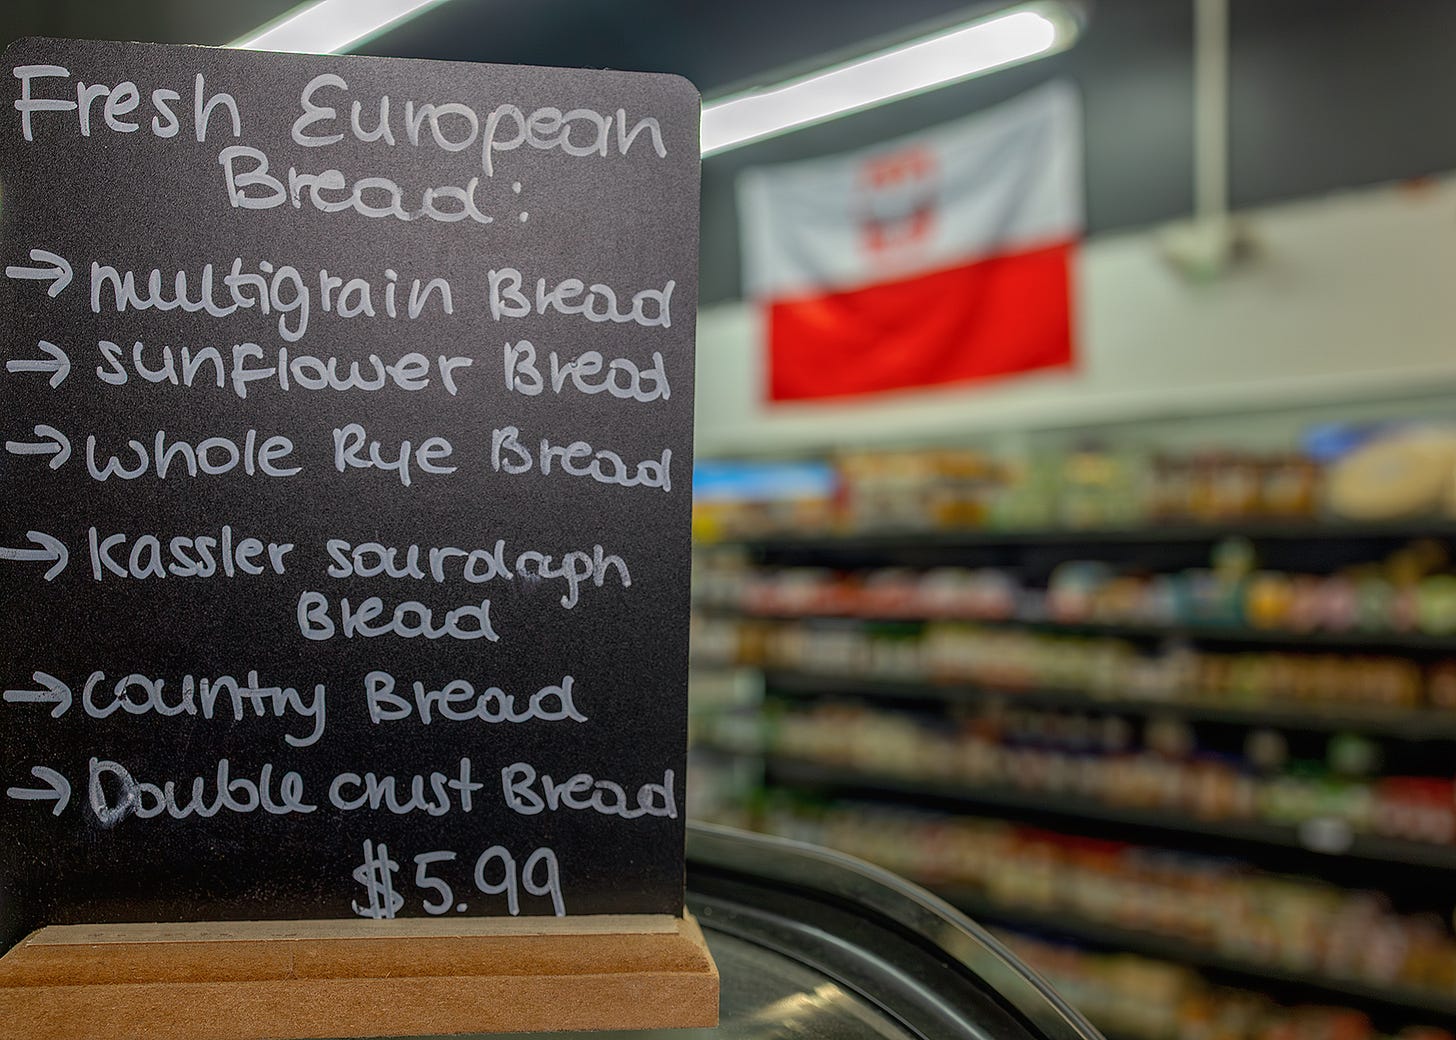 Fresh European
Bread:
→ multigrain Bread
→ sunflower Bread
→ whole Rye Bread
→ Kassler sourdough
Bread
→ country Bread
→ Double crust Bread
$5.99